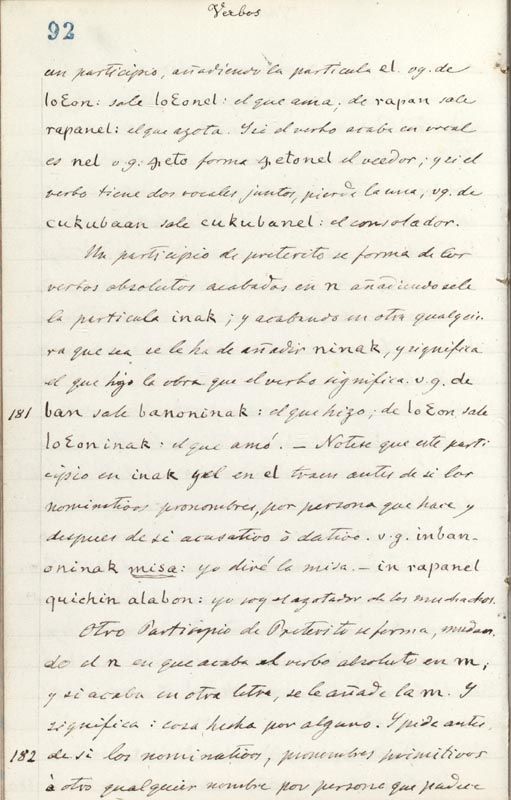 Verbos
92
un participio, añadiendo la particula el. v.g. de
loɛon: sale loɛonel: el que ama; de rapan sale
rapanel: el que azota. Y si el verbo acaba en vocal
es nel v.g. ꜭeto forma ꜭetonel el veedor; y si el
verbo tiene dos vocales juntas, pierde la una, v.g. de
cukubaan sale cukubanel: el consolador.
Un participio de preterito se forma de los
verbos absolutos acabados en n añadiendosele
la particula inak; y acabando en otra qualquie-
ra que sea se le ha de añadir ninak, y significa
el que hizo la obra que el verbo significa. v.g. de
181 ban sale banoninak: el que hizo; de loɛon, sale
loɛoninak: el que amó. — Notese que este parti-
cipio en inak y el en el traen antes de si los
nominativos pronombres, por persona que hace y
despues de si acusativo ò dativo. v.g. inban-
oninak misa: yo diré la misa. — in rapanel
quichin alabon: yo soy el azotador de los muchachos.
Otro Participio de Preterito se forma, mudan-
do el n en que acaba el verbo absoluto en m;
y si acaba en otra letra, se le añade la m. Y
significa: cosa hecha por alguno. Y pide antes
182 de si los nominativos, pronombres primitivos
à otro qualquier nombre por persona que padece